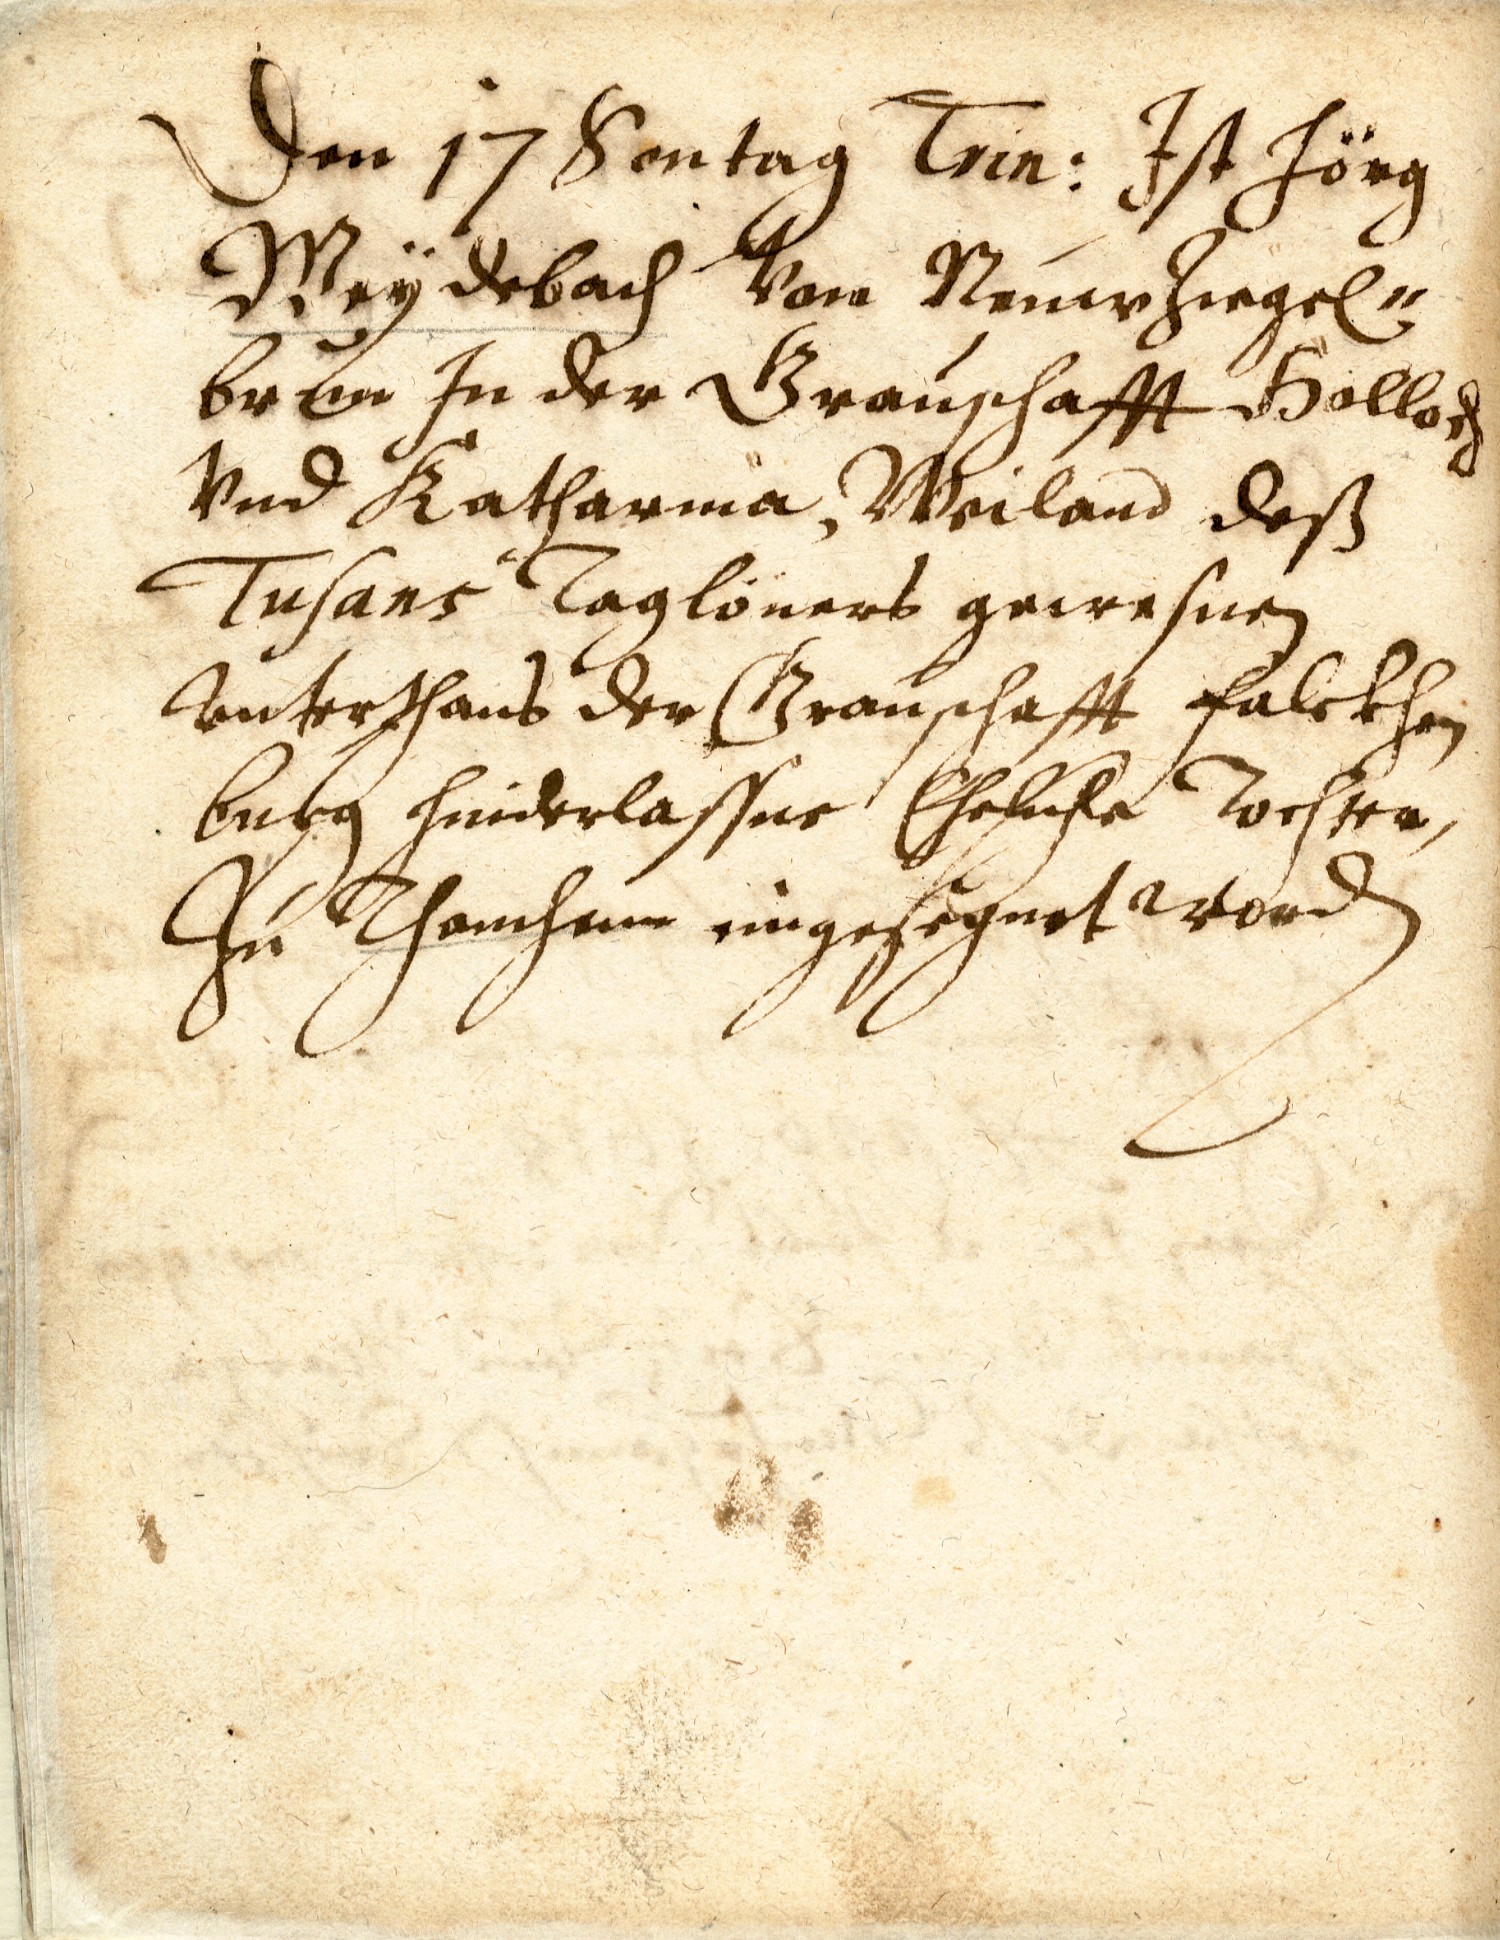 Den 17 Sontag Trin: Ist Jörg
Weÿdebach Von Neuw Ziegel=
brun In der Grauschafft Holloch
Vnd Katharina, Weiland deß
Tusans Taglöners gewesnen
vnterthans der Grauschafft falckhen
burg hinderlassne Eheliche Tochter,
Zu eingesegnet worden